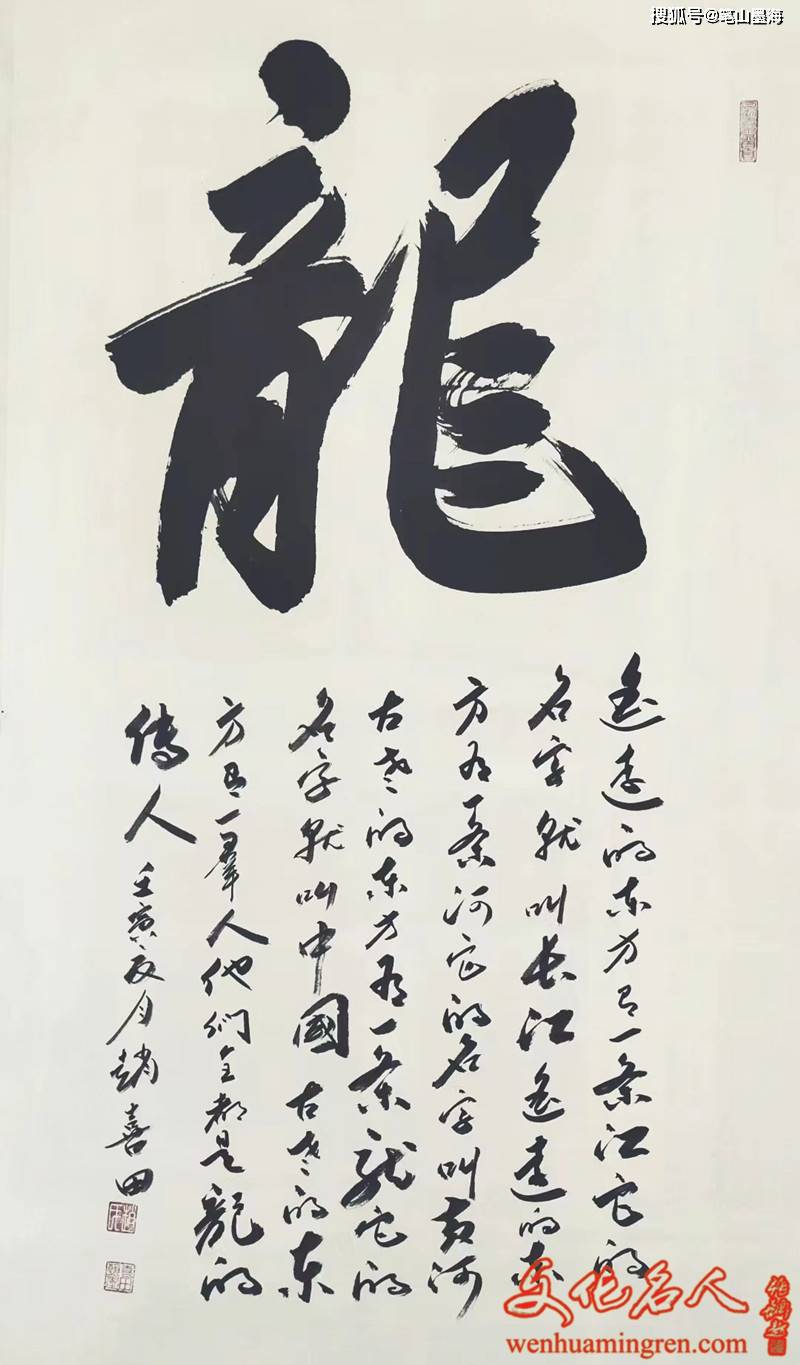 搜狐号@笔山墨海
龍
遥远的东方有一条江它的
名字就叫长江遥远的东
方有一条河它的名字叫黄河
古老的东方有一条龙它的
名字就叫中國古老的东
方有一羣人他们全都是龍的
傳人 壬寅夏月趙喜田
文化名人
wenhuamingren.com